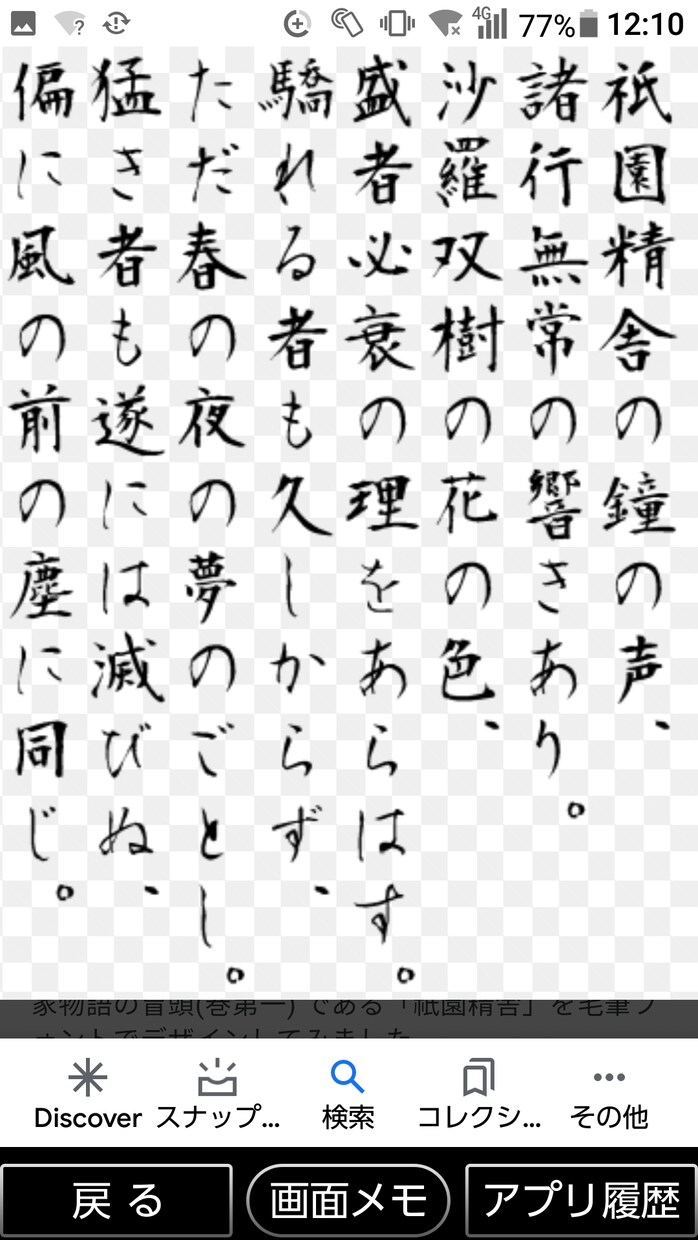 4G 77% 12:10
祇園精舎の鐘の声、
諸行無常の響きあり。
沙羅双樹の花の色、
盛者必衰の理をあらはす。
驕れる者も久しからず、
ただ春の夜の夢のごとし。
猛き者も遂には滅びぬ、
偏に風の前の塵に同じ。
家物語の冒頭(巻第一) である「祇園精舎」を毛筆フ
ォントでデザインしてみました
Discover スナップ... 検索 コレクシ... その他
戻る 画面メモ アプリ履歴